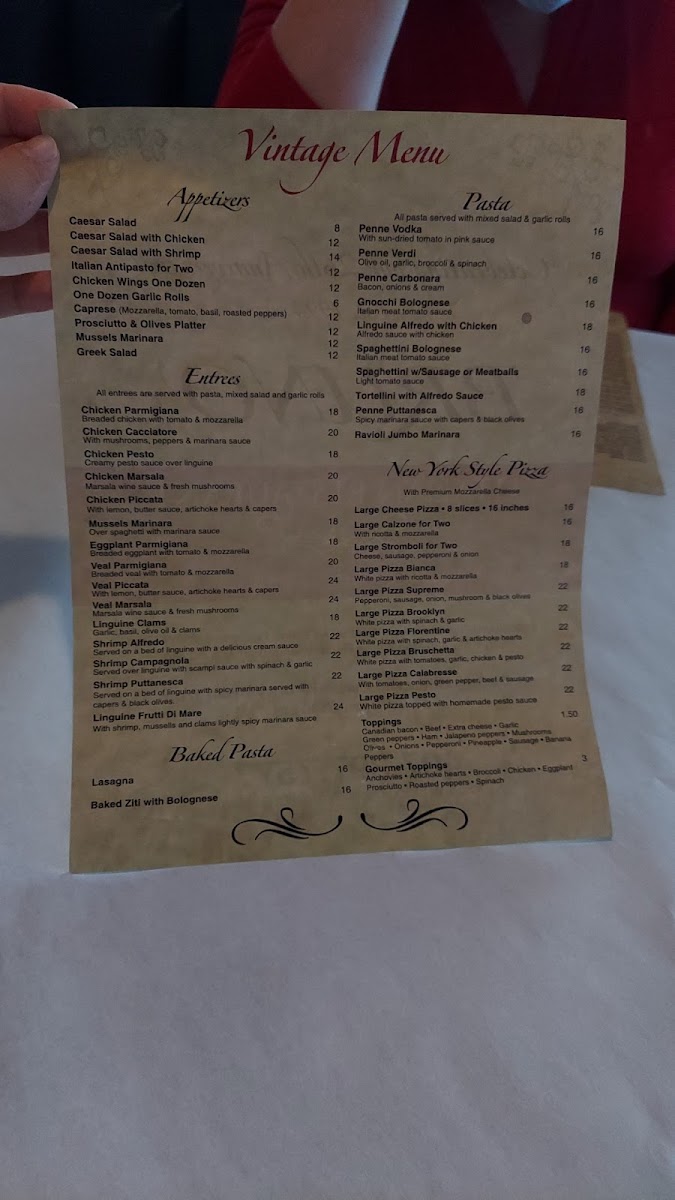 Vintage Menu
Appetizers
Caesar Salad 8
Caesar Salad with Chicken 12
Caesar Salad with Shrimp 14
Italian Antipasto for Two 12
Chicken Wings One Dozen 12
One Dozen Garlic Rolls 6
Caprese (Mozzarella, tomato, basil, roasted peppers) 12
Prosciutto & Olives Platter 12
Mussels Marinara 12
Greek Salad 12
Entrees
All entrees are served with pasta, mixed salad and garlic rolls
Chicken Parmigiana 18
Breaded chicken with tomato & mozzarella
Chicken Cacciatore 20
With mushrooms, peppers & marinara sauce
Chicken Pesto 18
Creamy pesto sauce over linguine
Chicken Marsala 20
Marsala wine sauce & fresh mushrooms
Chicken Piccata 20
With lemon, butter sauce, artichoke hearts & capers
Mussels Marinara 18
Over spaghetti with marinara sauce
Eggplant Parmigiana 18
Breaded eggplant with tomato & mozzarella
Veal Parmigiana 20
Breaded veal with tomato & mozzarella
Veal Piccata 24
With lemon, butter sauce, artichoke hearts & capers
Veal Marsala 24
Marsala wine sauce & fresh mushrooms
Linguine Clams 18
Garlic, basil, olive oil & clams
Shrimp Alfredo 22
Served on a bed of linguine with a delicious cream sauce
Shrimp Campagnola 22
Served over linguine with scampi sauce with spinach & garlic
Shrimp Puttanesca 22
Served on a bed of linguine with spicy marinara served with
capers & black olives.
Linguine Frutti Di Mare 24
With shrimp, mussells and clams lightly spicy marinara sauce
Baked Pasta
Lasagna 16
Baked Ziti with Bolognese 16
Pasta
All pasta served with mixed salad & garlic rolls
Penne Vodka 16
With sun-dried tomato in pink sauce
Penne Verdi 16
Olive oil, garlic, broccoli & spinach
Penne Carbonara 16
Bacon, onions & cream
Gnocchi Bolognese 16
Italian meat tomato sauce
Linguine Alfredo with Chicken 18
Alfredo sauce with chicken
Spaghettini Bolognese 16
Italian meat tomato sauce
Spaghettini w/Sausage or Meatballs 16
Light tomato sauce
Tortellini with Alfredo Sauce 18
Penne Puttanesca 16
Spicy marinara sauce with capers & black olives
Ravioli Jumbo Marinara 16
New York Style Pizza
With Premium Mozzarella Cheese
Large Cheese Pizza • 8 slices • 16 inches 16
Large Calzone for Two 16
With ricotta & mozzarella
Large Stromboli for Two 18
Cheese, sausage, pepperoni & onion
Large Pizza Bianca 18
White pizza with ricotta & mozzarella
Large Pizza Supreme 22
Pepperoni, sausage, onion, mushroom & black olives
Large Pizza Brooklyn 22
White pizza with spinach & garlic
Large Pizza Florentine 22
White pizza with spinach, garlic & artichoke hearts
Large Pizza Bruschetta 22
White pizza with tomatoes, garlic, chicken & pesto
Large Pizza Calabresse 22
With tomatoes, onion, green pepper, beef & sausage
Large Pizza Pesto 22
White pizza topped with homemade pesto sauce
Toppings 1.50
Canadian bacon • Beef • Extra cheese • Garlic
Green peppers • Ham • Jalapeno peppers • Mushrooms
Olives • Onions • Pepperoni • Pineapple • Sausage • Banana
Peppers
Gourmet Toppings 3
Anchovies • Artichoke hearts • Broccoli • Chicken • Eggplant
Prosciutto • Roasted peppers • Spinach